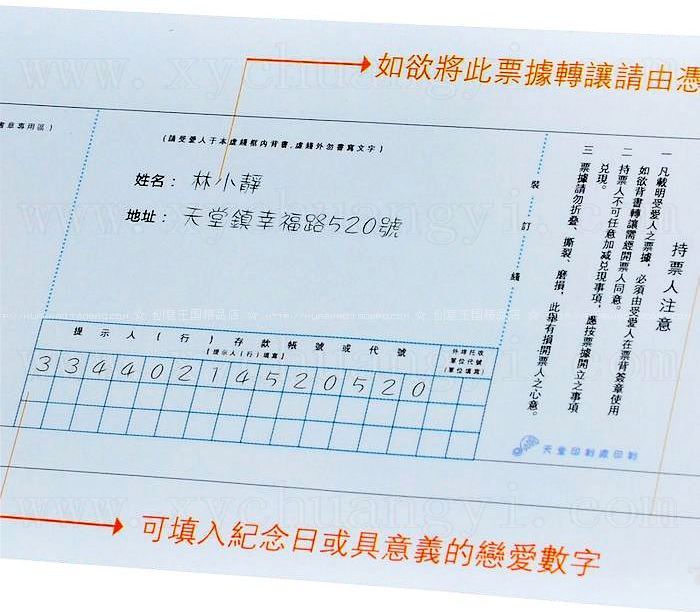 www.xychuangyi.com
如欲將此票據轉讓請由憑
書章專用區)
(請受愛人于本虛線框內背書,虛綫外勿書寫文字)
姓名: 林小靜
地址: 天堂鎮幸福路520號
裝訂綫
持票人注意
一 凡載明受愛人之票據,必須由受愛人在票背簽章使用
如欲背書轉讓需經開票人同意。
二 持票人不可任意加減兌現事項,應按票據開立之事項
兌現。
三 票據請勿折叠、撕裂、磨損,此舉有損開票人之心意。
☆ 創意王國精品店 ☆
提示人(行)存款帳號或代號
[提示人(行)填寫]
外埠托收
單位代號
(單位填寫)
33440214520520
天堂印制廠印制
www.xychuangyi.com
可填入紀念日或具意義的戀愛數字